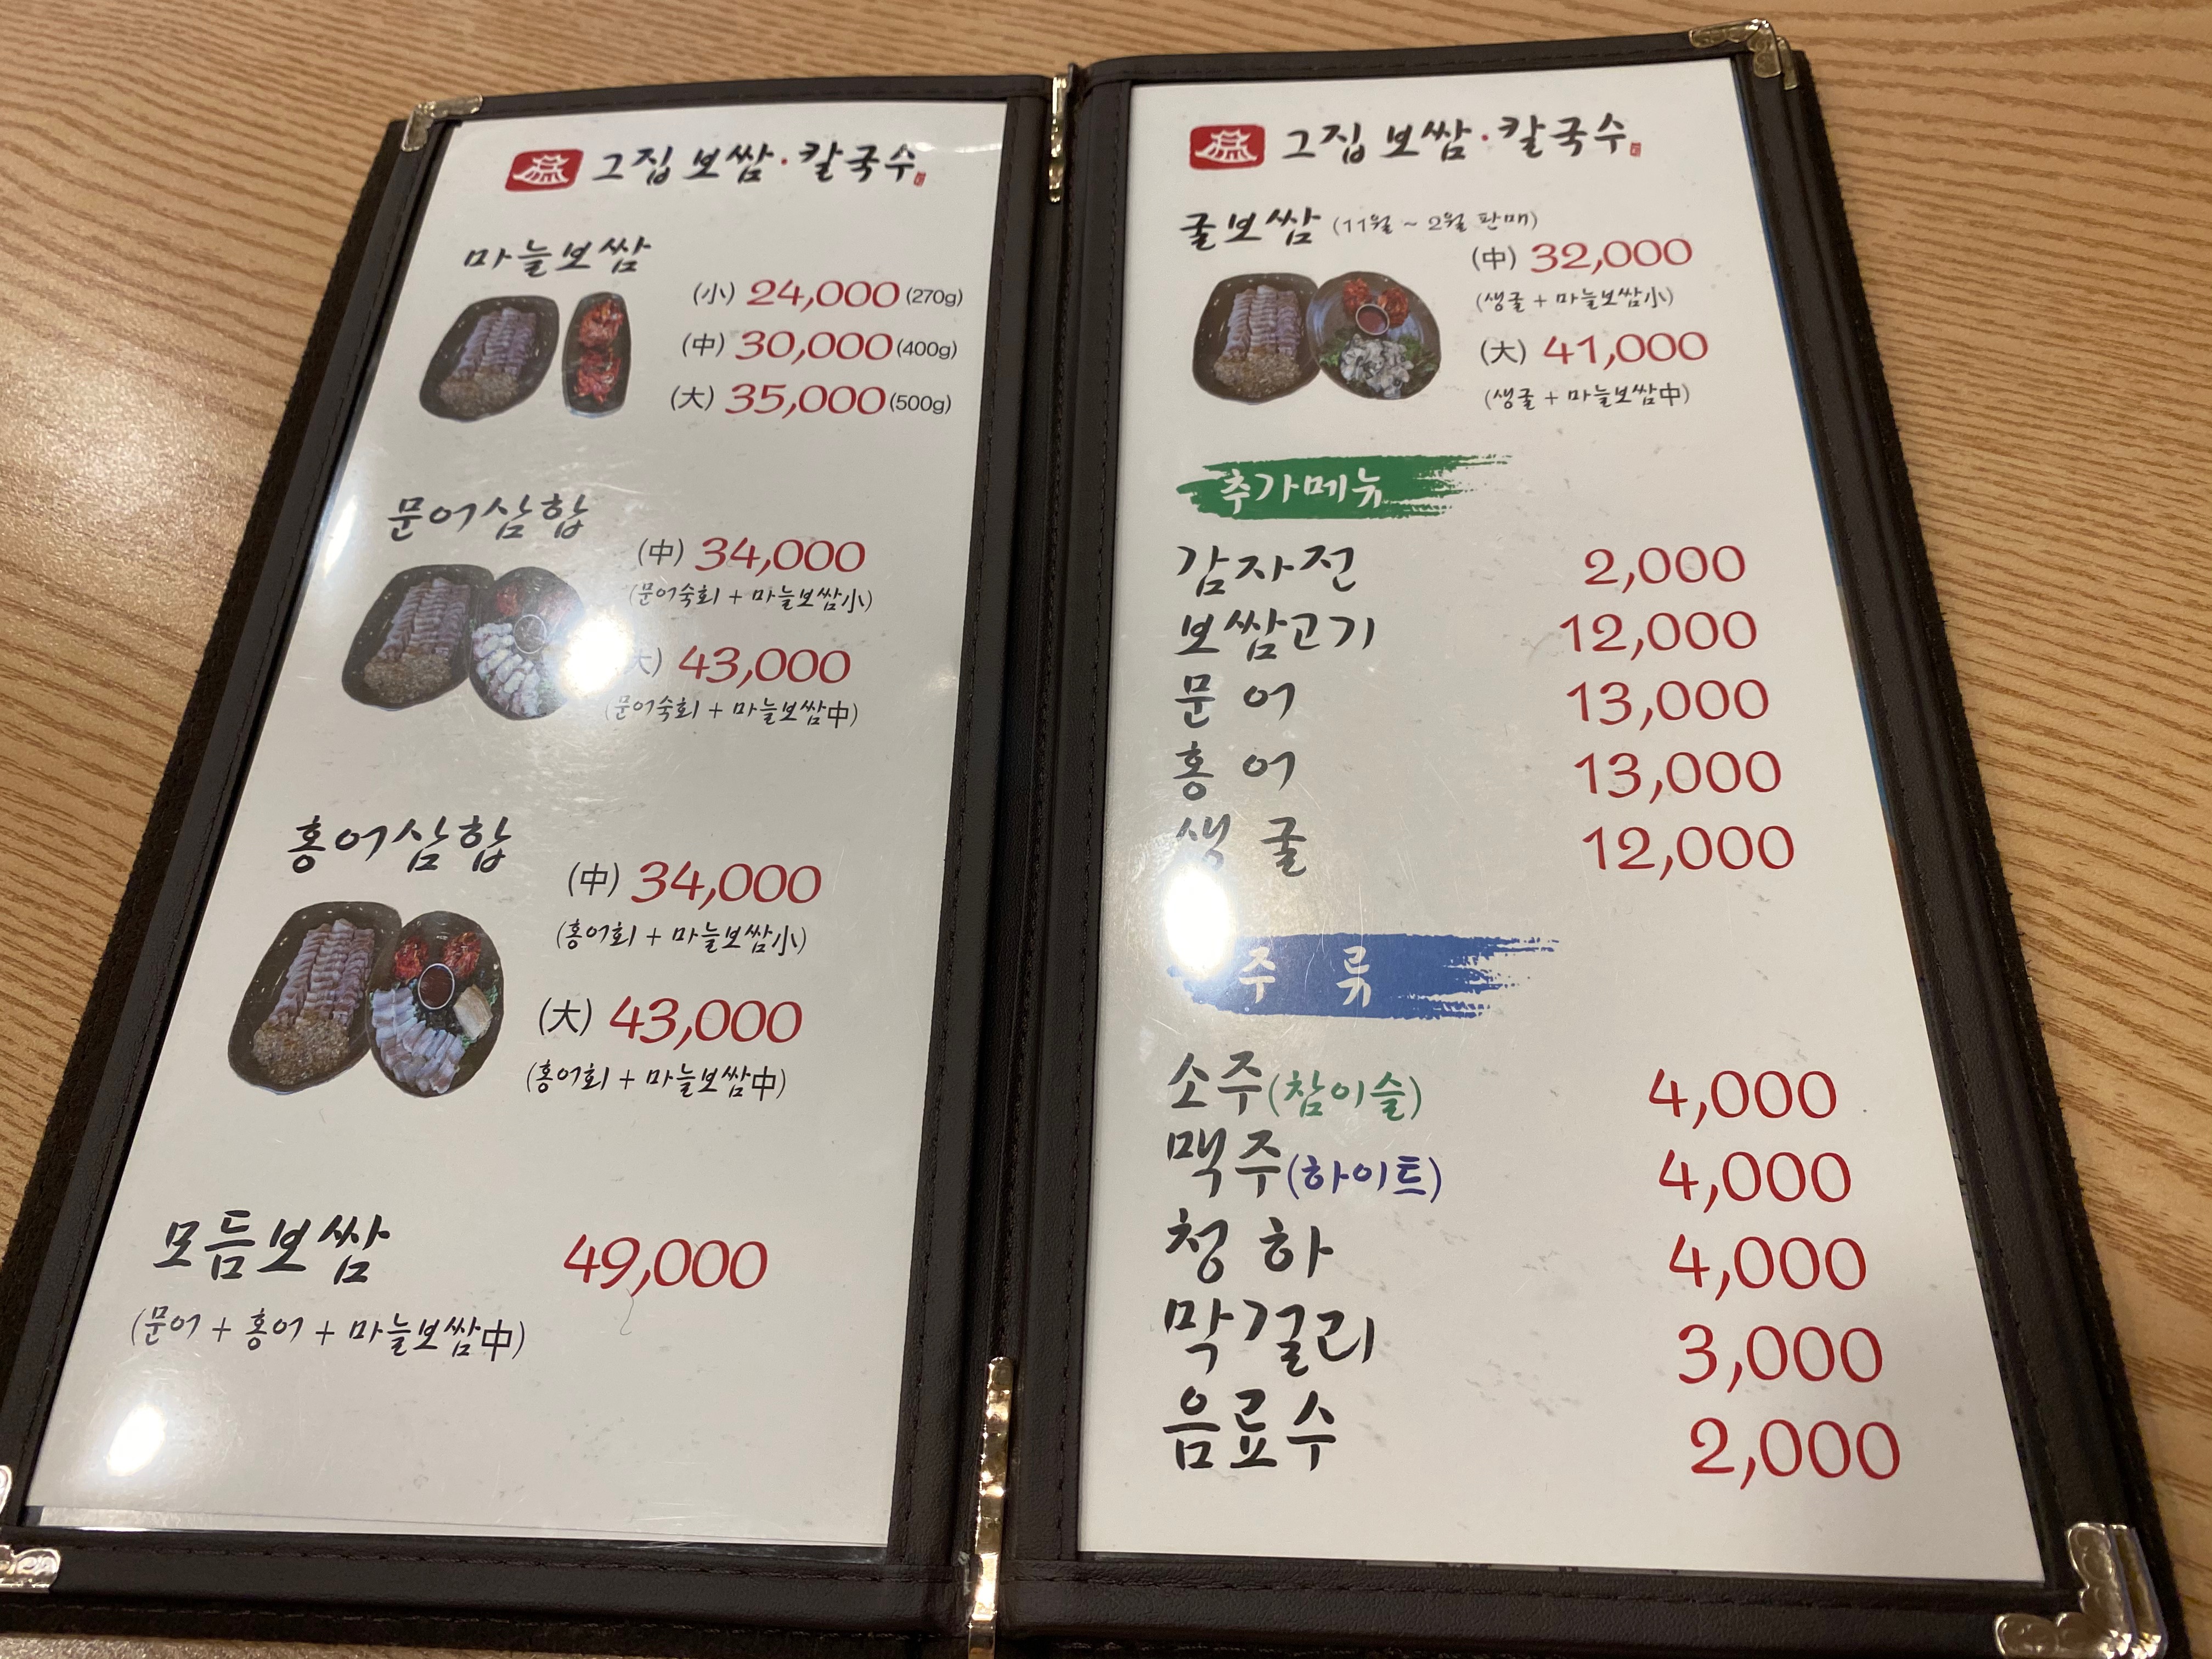 그집 보쌈·칼국수
마늘보쌈
(小) 24,000 (270g)
(中) 30,000 (400g)
(大) 35,000 (500g)
문어삼합
(中) 34,000
(문어숙회 + 마늘보쌈小)
大) 43,000
(문어숙회 + 마늘보쌈中)
홍어삼합
(中) 34,000
(홍어회 + 마늘보쌈小)
(大) 43,000
(홍어회 + 마늘보쌈中)
모듬보쌈 49,000
(문어 + 홍어 + 마늘보쌈中)
그집 보쌈·칼국수
굴보쌈 (11월 ~ 2월 판매)
(中) 32,000
(생굴 + 마늘보쌈小)
(大) 41,000
(생굴 + 마늘보쌈中)
추가메뉴
감자전 2,000
보쌈고기 12,000
문 어 13,000
홍 어 13,000
생 굴 12,000
주 류
소주(참이슬) 4,000
맥주(하이트) 4,000
청 하 4,000
막걸리 3,000
음료수 2,000